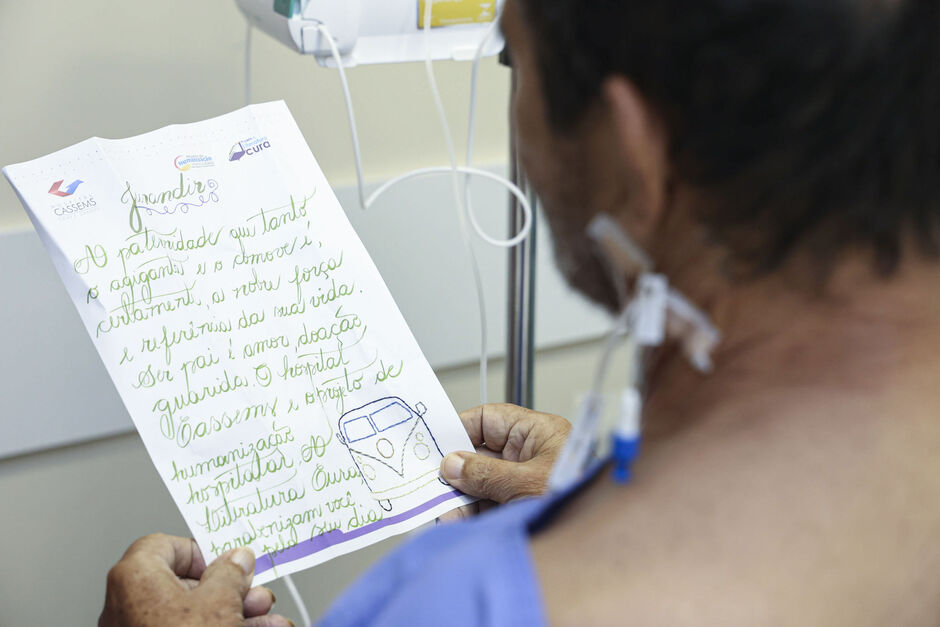 CASSEMS
Humanização
cura
Jurandir
A paternidade que tanto
o agiganta e o comove é,
certamente, a nobre força
e referência da sua vida.
Ser pai é amor, doação,
guarida. O hospital
Cassems e o projeto de
humanização
hospitalar A
Literatura Cura
parabenizam você
pelo seu dia